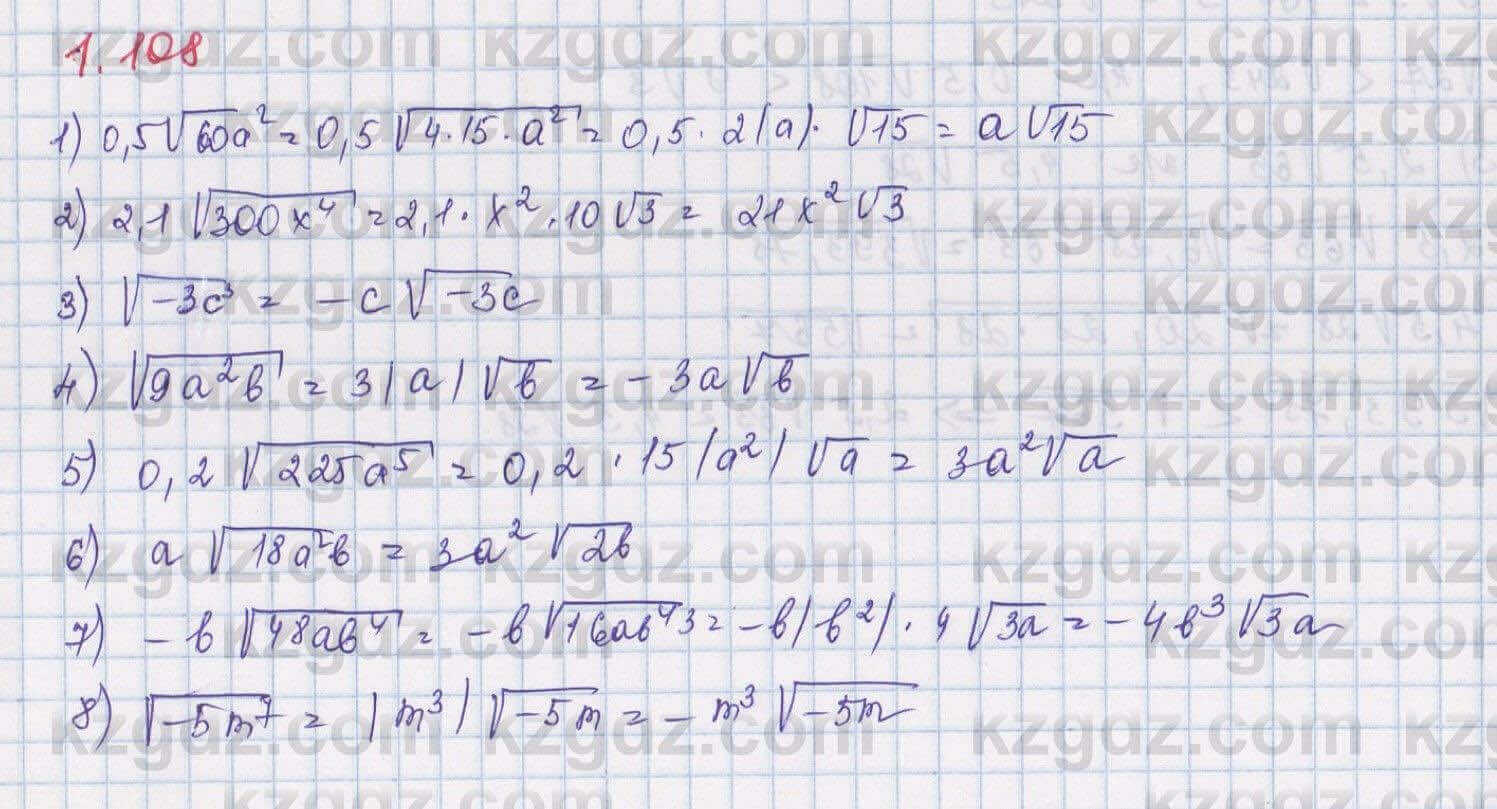 1.108
1) 0,5√60a² = 0,5√4·15·a² = 0,5·2|a|·√15 = a√15
2) 2,1√300x⁴ = 2,1·x²·10√3 = 21x²√3
3) √-3c³ = -c√-3c
4) √9a²b = 3|a|√b = -3a√b
5) 0,2√225a⁵ = 0,2·15|a²|√a = 3a²√a
6) a√18a²b = 3a²√2b
7) -b√48ab⁴ = -b√16ab⁴3 = -b|b²|·4√3a = -4b³√3a
8) √-5m⁷ = |m³|√-5m = -m³√-5m
kzgdz.com